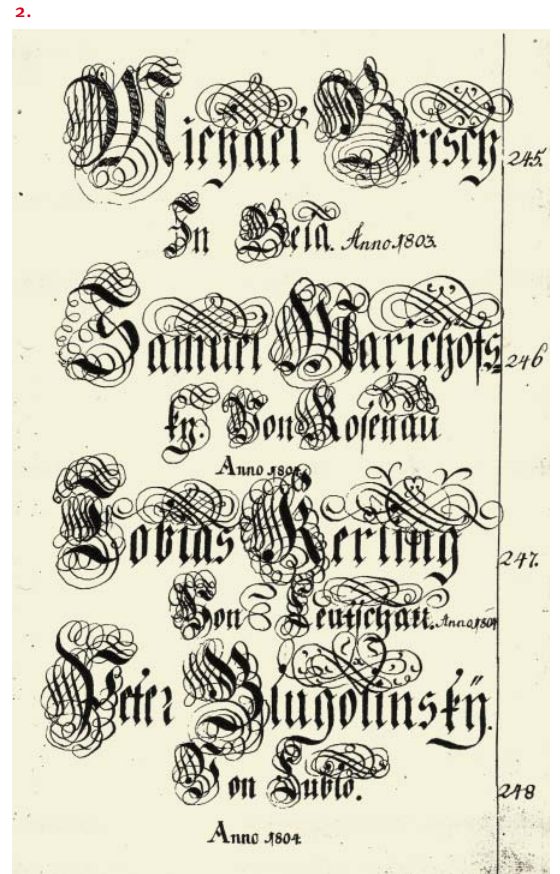 2.
Michael Bresch 245.
In Bela. Anno 1803.
Samuel Marichofs= 246
ky. Von Rosenau
Anno 1804.
Tobias Kerling 247.
Von Leutschau. Anno 1804
Peter Blugolinskÿ.
Von Lublo. 248
Anno 1804